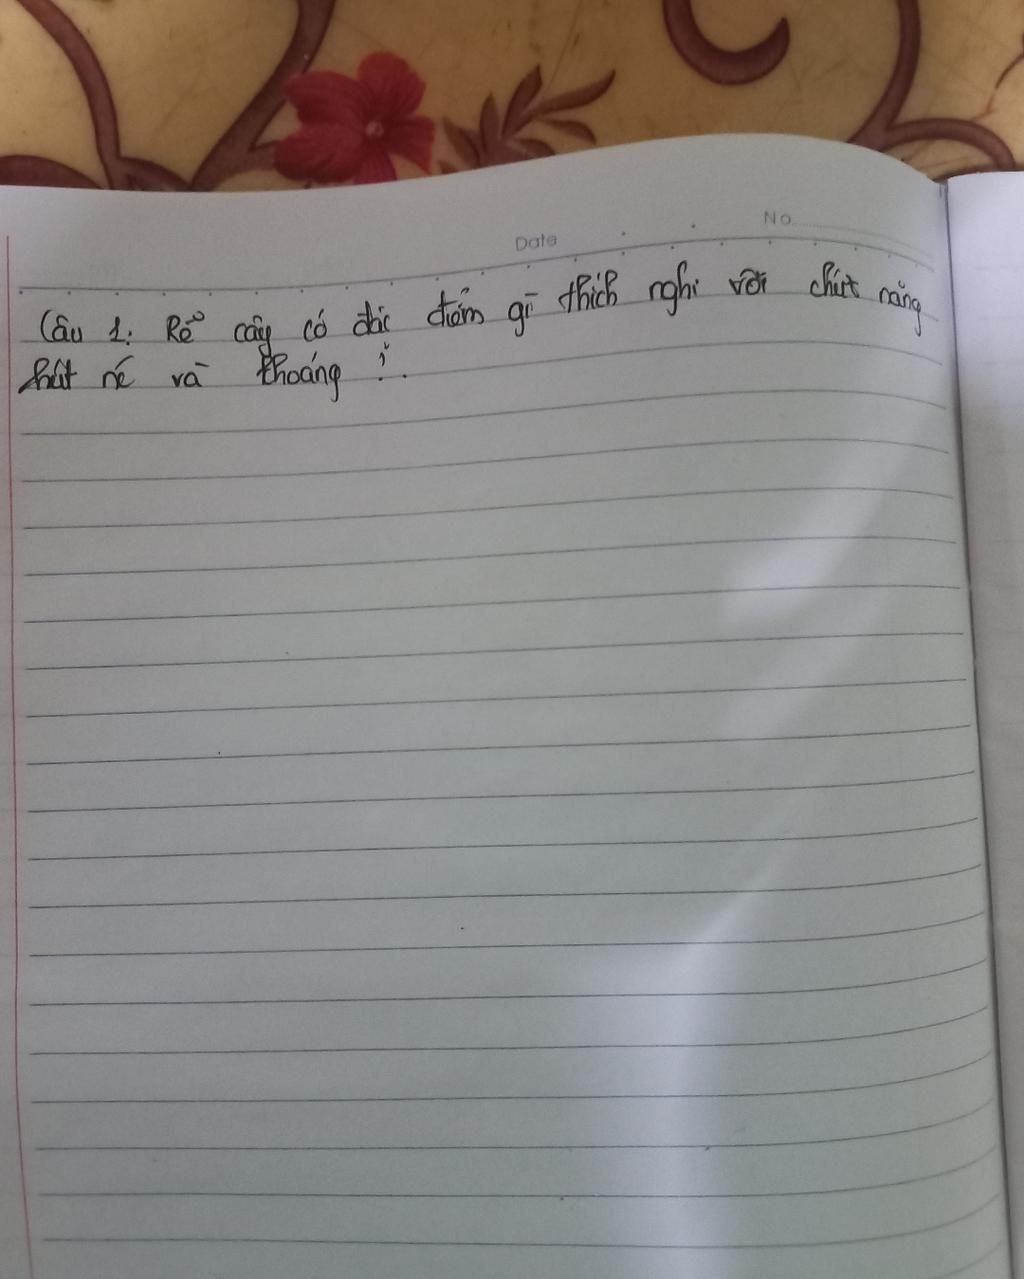 No
Date
Câu 1: Rễ cây có đặc điểm gì thích nghi với chức năng
hút nc và khoáng ?.